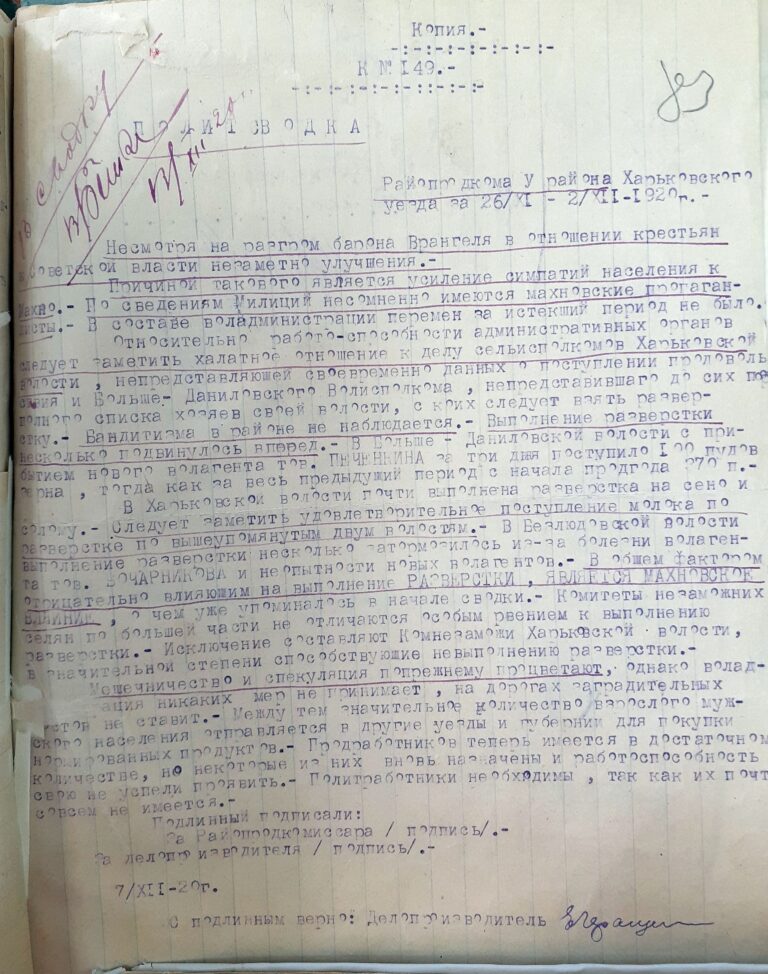 Копия.-
-:-:-:-:-:-:-:-
К № 149.-
-:-:-:-:-:-:-:-:-
в сводку
ПОЛИТСВОДКА
Райопродкома У района Харьковского
уезда за 26/XI - 2/XII-1920г.-
Несмотря на разгром барона Врангеля в отношении крестьян
к Советской власти незаметно улучшения.-
Причиной такового является усиление симпатий населения к
Махно.- По сведениям Милиций несомненно имеются махновские пропаган-
дисты.- В составе воладминистрации перемен за истекший период не было.
Относительно работо-способности административных органов
следует заметить халатное отношение к делу сельисполкомов Харьковской
волости , непредставляющей своевременно данных о поступлении продоволь
ствия и Больше- Даниловского Волисполкома , непредставившаго до сих пор
полного списка хозяев своей волости, с коих следует взять развер-
стку.- Бандитизма в районе не наблюдается.- Выполнение разверстки
несколько подвинулось вперед.- В Больше - Даниловской волости с при-
бытием нового волагента тов. ПЕЧЕНКИНА за три дня поступило 100 пудов
зерна , тогда как за весь предыдущий период с начала продгода 370 п.-
В Харьковской волости почти выполнена разверстка на сено и
солому.- Следует заметить удовлетворительное поступление молока по
разверстке по вышеупомянутым двум волостям.- В Безлюдовской волости
выполнение разверстки несколько затормозилось из-за болезни волаген-
та тов. БОЧАРНИКОВА и неопытности новых волагентов.- В общем фактором
отрицательно влияющим на выполнение РАЗВЕРСТКИ , ЯВЛЯЕТСЯ МАХНОВСКОЕ
ВЛИЯНИЕ , о чем уже упоминалось в начале сводки.- Комитеты незаможних
селян по большей части не отличаются особым рвением к выполнению
разверстки.- Исключение составляют Комнезаможи Харьковской волости,
в значительной степени способствующие невыполнению разверстки.-
Мешечничество и спекуляция попрежнему процветают, однако волад-
ация никаких мер не принимает , на дорогах заградительных
постов не ставит.- Между тем значительное количество взрослого муж-
ского населения отправляется в другие уезды и губернии для покупки
нормированных продуктов.- Продработников теперь имеется в достаточном
количестве, но некоторые из них вновь назначены и работоспособность
свою не успели проявить.- Политработники необходимы , так как их почт
совсем не имеется.-
Подлинный подписали:
За Райопродкомиссара / подпись/.-
За делопроизводителя / подпись/.-
7/XII-20г.
С подлинным верно: Делопроизводитель